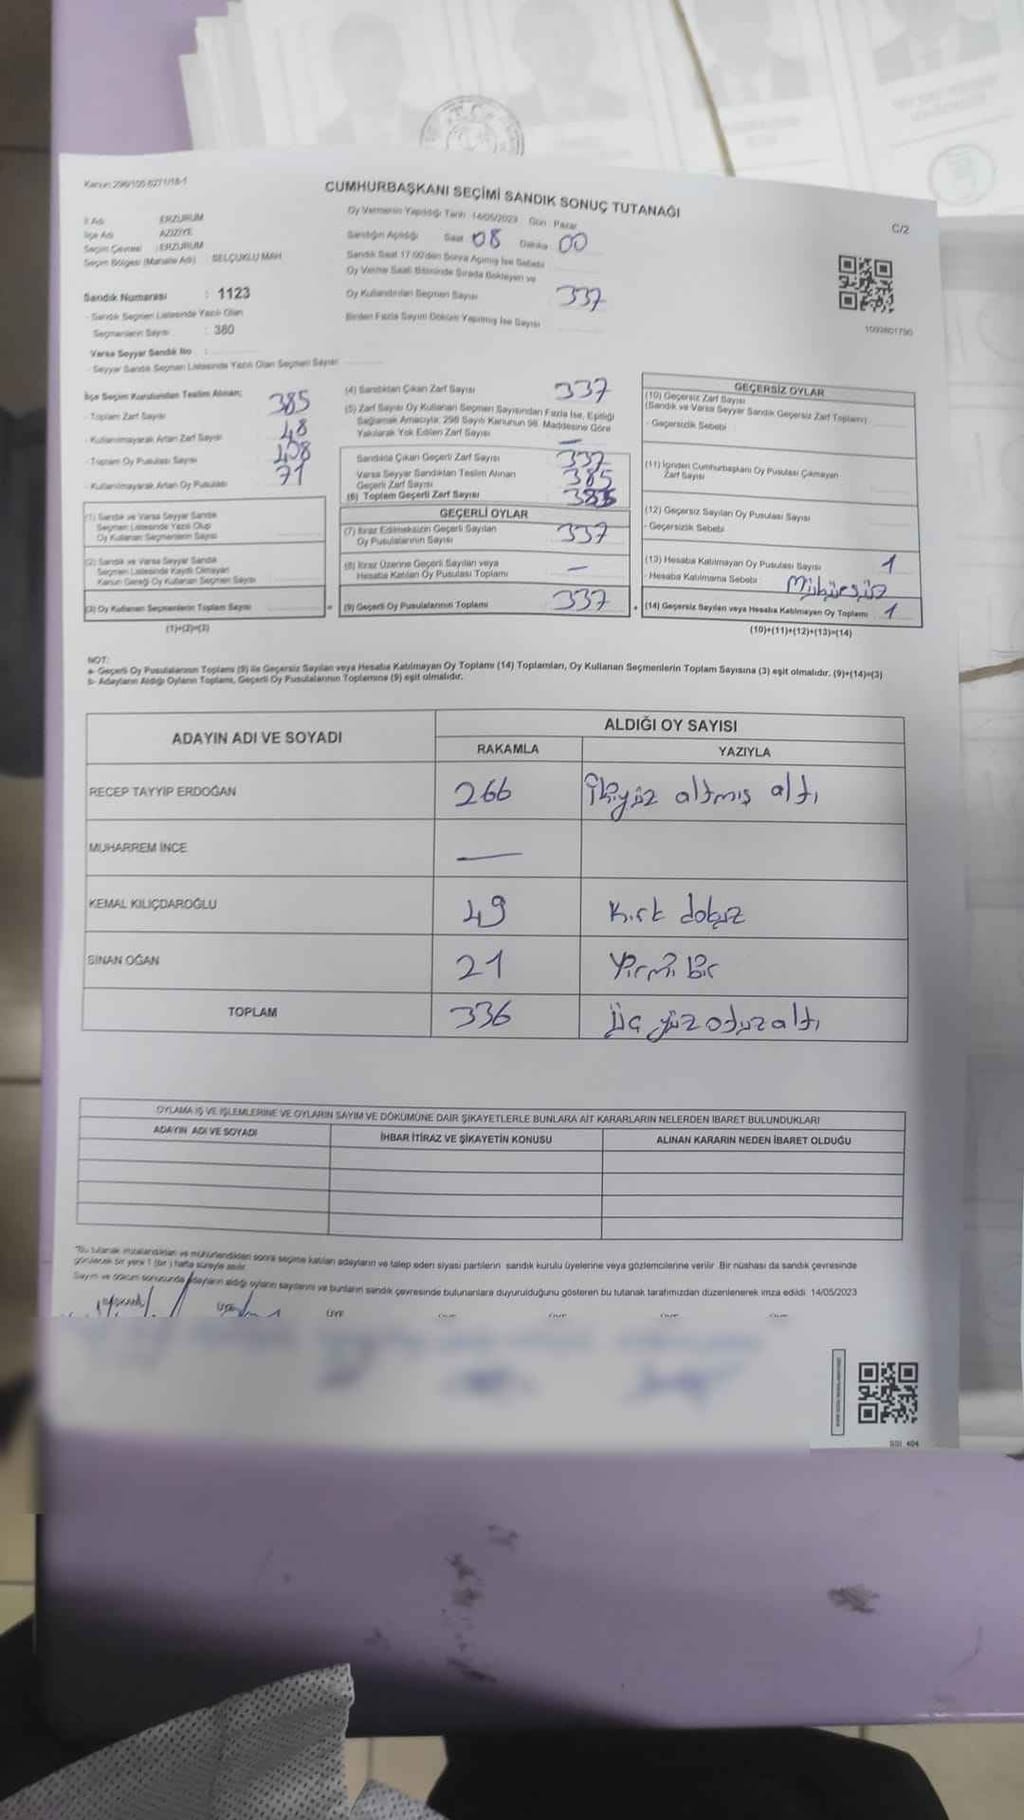 Kanun: 298/105-6271/18-1
CUMHURBAŞKANI SEÇİMİ SANDIK SONUÇ TUTANAĞI
C/2
İl Adı : ERZURUM
İlçe Adı : AZİZİYE
Seçim Çevresi : ERZURUM
Seçim Bölgesi (Mahalle Adı) : SELÇUKLU MAH
Sandık Numarası : 1123
- Sandık Seçmen Listesinde Yazılı Olan
Seçmenlerin Sayısı : 380
Varsa Seyyar Sandık No :
- Seyyar Sandık Seçmen Listesinde Yazılı Olan Seçmen Sayısı
Oy Vermenin Yapıldığı Tarih 14/05/2023 Gün Pazar
Sandığın Açıldığı Saat 08 Dakika 00
Sandık Saat 17:00'den Sonra Açılmış İse Sebebi
Oy Verme Saati Bitiminde Sırada Bekleyen ve
Oy Kullandırılan Seçmen Sayısı 337
Birden Fazla Sayım Döküm Yapılmış İse Sayısı
İlçe Seçim Kurulundan Teslim Alınan;
- Toplam Zarf Sayısı 385
- Kullanılmayarak Artan Zarf Sayısı 48
- Toplam Oy Pusulası Sayısı 408
- Kullanılmayarak Artan Oy Pusulası 71
(1) Sandık ve Varsa Seyyar Sandık
Seçmen Listesinde Yazılı Olup
Oy Kullanan Seçmenlerin Sayısı
(2) Sandık ve Varsa Seyyar Sandık
Seçmen Listesinde Kayıtlı Olmayan
Kanun Gereği Oy Kullanan Seçmen Sayısı
(3) Oy Kullanan Seçmenlerin Toplam Sayısı
(1)+(2)=(3)
=
(4) Sandıktan Çıkan Zarf Sayısı 337
(5) Zarf Sayısı Oy Kullanan Seçmen Sayısından Fazla İse, Eşitliği
Sağlamak Amacıyla; 298 Sayılı Kanunun 98. Maddesine Göre
Yakılarak Yok Edilen Zarf Sayısı —
Sandıkta Çıkan Geçerli Zarf Sayısı 337
Varsa Seyyar Sandıktan Teslim Alınan
Geçerli Zarf Sayısı 385
(6) Toplam Geçerli Zarf Sayısı
GEÇERLİ OYLAR
(7) İtiraz Edilmeksizin Geçerli Sayılan
Oy Pusulalarının Sayısı 337
(8) İtiraz Üzerine Geçerli Sayılan veya
Hesaba Katılan Oy Pusulası Toplamı —
(9) Geçerli Oy Pusulalarının Toplamı 337
+
GEÇERSİZ OYLAR
(10) Geçersiz Zarf Sayısı
(Sandık ve Varsa Seyyar Sandık Geçersiz Zarf Toplamı)
- Geçersizlik Sebebi
(11) İçinden Cumhurbaşkanı Oy Pusulası Çıkmayan
Zarf Sayısı
(12) Geçersiz Sayılan Oy Pusulası Sayısı
- Geçersizlik Sebebi
(13) Hesaba Katılmayan Oy Pusulası Sayısı 1
- Hesaba Katılmama Sebebi Mühürsüz
(14) Geçersiz Sayılan veya Hesaba Katılmayan Oy Toplamı 1
(10)+(11)+(12)+(13)=(14)
NOT:
a- Geçerli Oy Pusulalarının Toplamı (9) ile Geçersiz Sayılan veya Hesaba Katılmayan Oy Toplamı (14) Toplamları, Oy Kullanan Seçmenlerin Toplam Sayısına (3) eşit olmalıdır. (9)+(14)=(3)
b- Adayların Aldığı Oyların Toplamı, Geçerli Oy Pusulalarının Toplamına (9) eşit olmalıdır.
ADAYIN ADI VE SOYADI
ALDIĞI OY SAYISI
RAKAMLA YAZIYLA
RECEP TAYYİP ERDOĞAN 266 İkiyüz altmış altı
MUHARREM İNCE —
KEMAL KILIÇDAROĞLU 49 Kırk dokuz
SİNAN OĞAN 21 Yirmi bir
TOPLAM 336 Üç yüz otuz altı
OYLAMA İŞ VE İŞLEMLERİNE VE OYLARIN SAYIM VE DÖKÜMÜNE DAİR ŞİKAYETLERLE BUNLARA AİT KARARLARIN NELERDEN İBARET BULUNDUKLARI
ADAYIN ADI VE SOYADI İHBAR İTİRAZ VE ŞİKAYETİN KONUSU ALINAN KARARIN NEDEN İBARET OLDUĞU
*Bu tutanak imzalandıktan ve mühürlendikten sonra seçime katılan adayların ve talep eden siyasi partilerin sandık kurulu üyelerine veya gözlemcilerine verilir. Bir nüshası da sandık çevresinde
görülecek bir yere 1 (bir) hafta süreyle asılır.
Sayım ve döküm sonucunda adayların aldığı oyların sayılarını ve bunların sandık çevresinde bulunanlara duyurulduğunu gösteren bu tutanak tarafımızdan düzenlenerek imza edildi. 14/05/2023
ÜYE